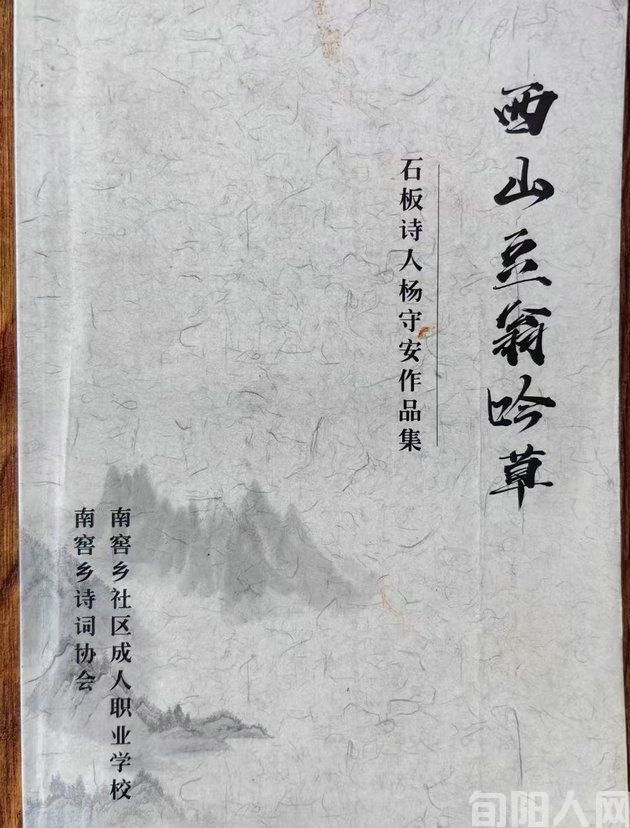 西山豆翁吟草
石板诗人杨守安作品集
南窖乡社区成人职业学校
南窖乡诗词协会
旬阳人网